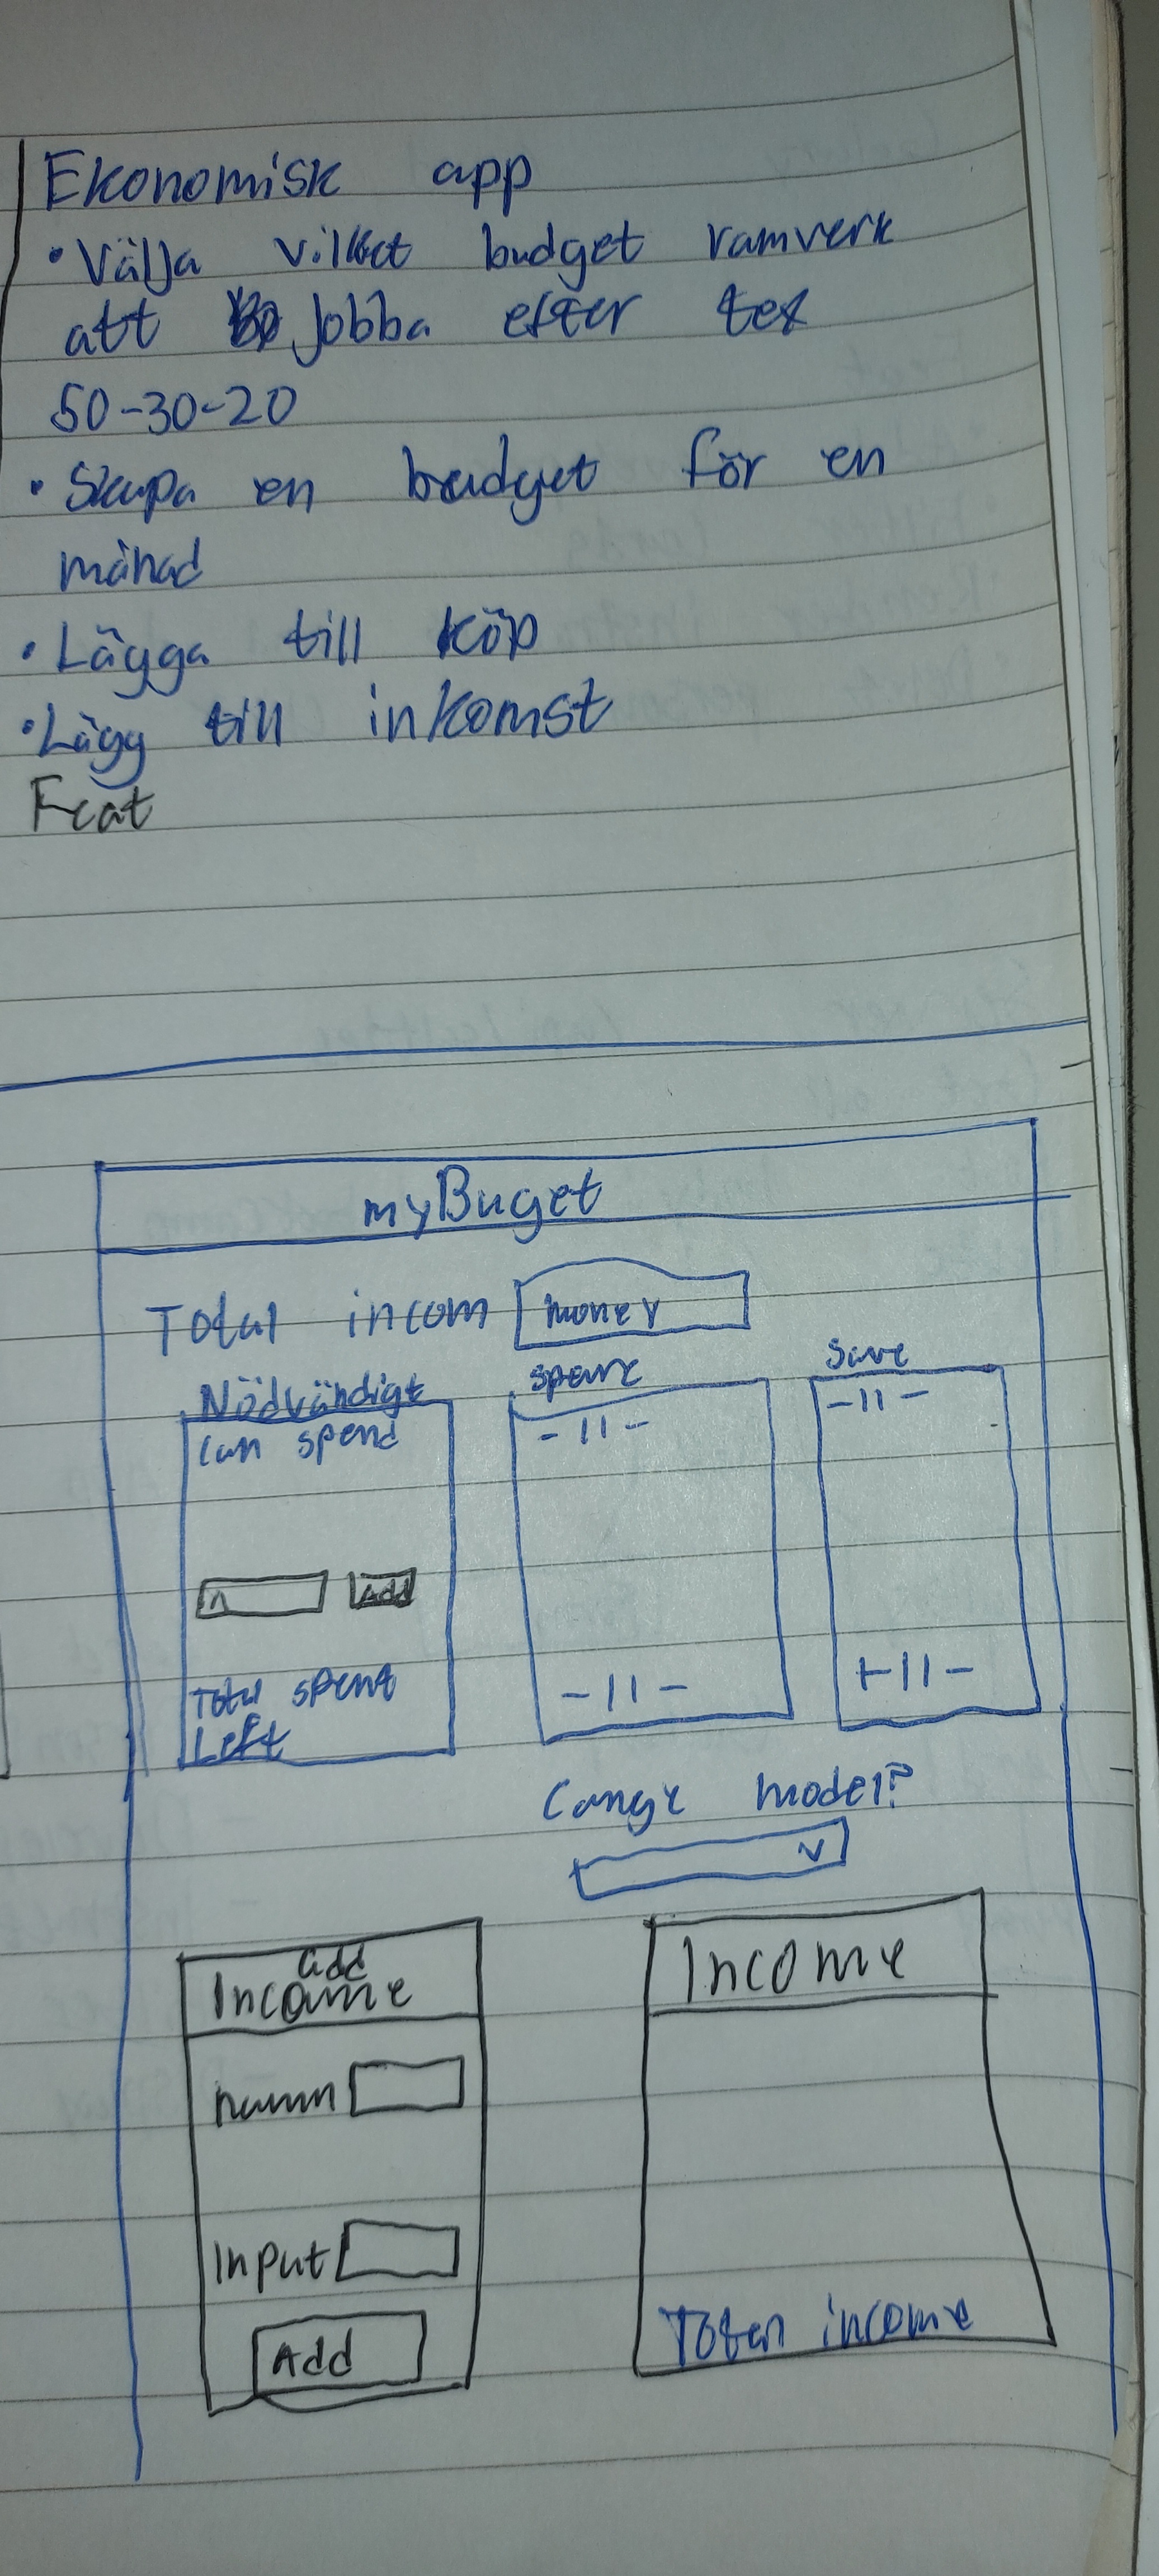 Ekonomisk app
• Välja vilket budget ramverk
att jobba efter tex
50-30-20
• Skapa en budget för en
månad
• Lägga till köp
• Lägg till inkomst
Feat
myBuget
Total incom money
Nödvändigt
Can spend
Add
Total spent
Left
- 11 -
- 11 -
Save
- 11 -
- 11 -
Cange model?
add
Income
namn
Input
Add
Income
income